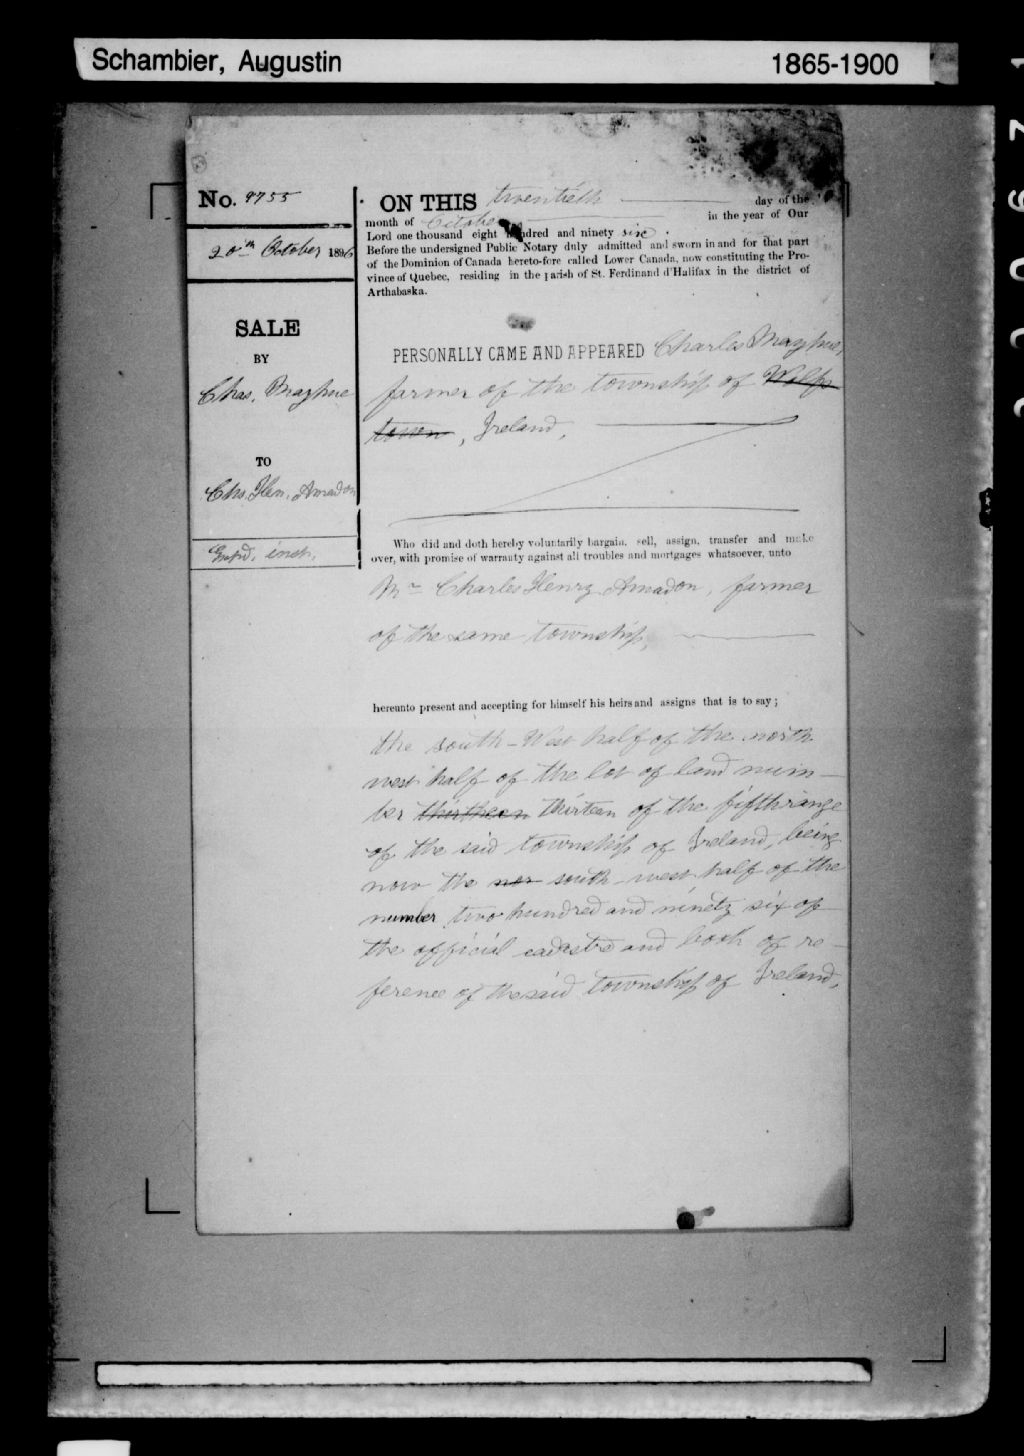 Schambier, Augustin 1865-1900
No. 9755
20th October 1896
SALE
BY
Chas. Mayhue
TO
Chs. Hen. Amadon
inst.
ON THIS twentieth day of the
month of October in the year of Our
Lord one thousand eight hundred and ninety six.
Before the undersigned Public Notary duly admitted and sworn in and for that part
of the Dominion of Canada hereto-fore called Lower Canada, now constituting the Pro-
vince of Quebec, residing in the parish of St. Ferdinand d'Halifax in the district of
Arthabaska.
PERSONALLY CAME AND APPEARED Charles Mayhue,
farmer of the township of Wolfe
town, Ireland,
Who did and doth hereby voluntarily bargain, sell, assign, transfer and make
over, with promise of warrauty against all troubles and mortgages whatsoever, unto
Mr Charles Henry Amadon, farmer
of the same township,
hereunto present and accepting for himself his heirs and assigns that is to say;
the south-West half of the north
west half of the lot of land num-
ber thirtheen thirteen of the fifth range
of the said township of Ireland, being
now the nor south-west half of the
number two hundred and ninety six of
the official cadastre and book of re-
ference of the said township of Ireland,